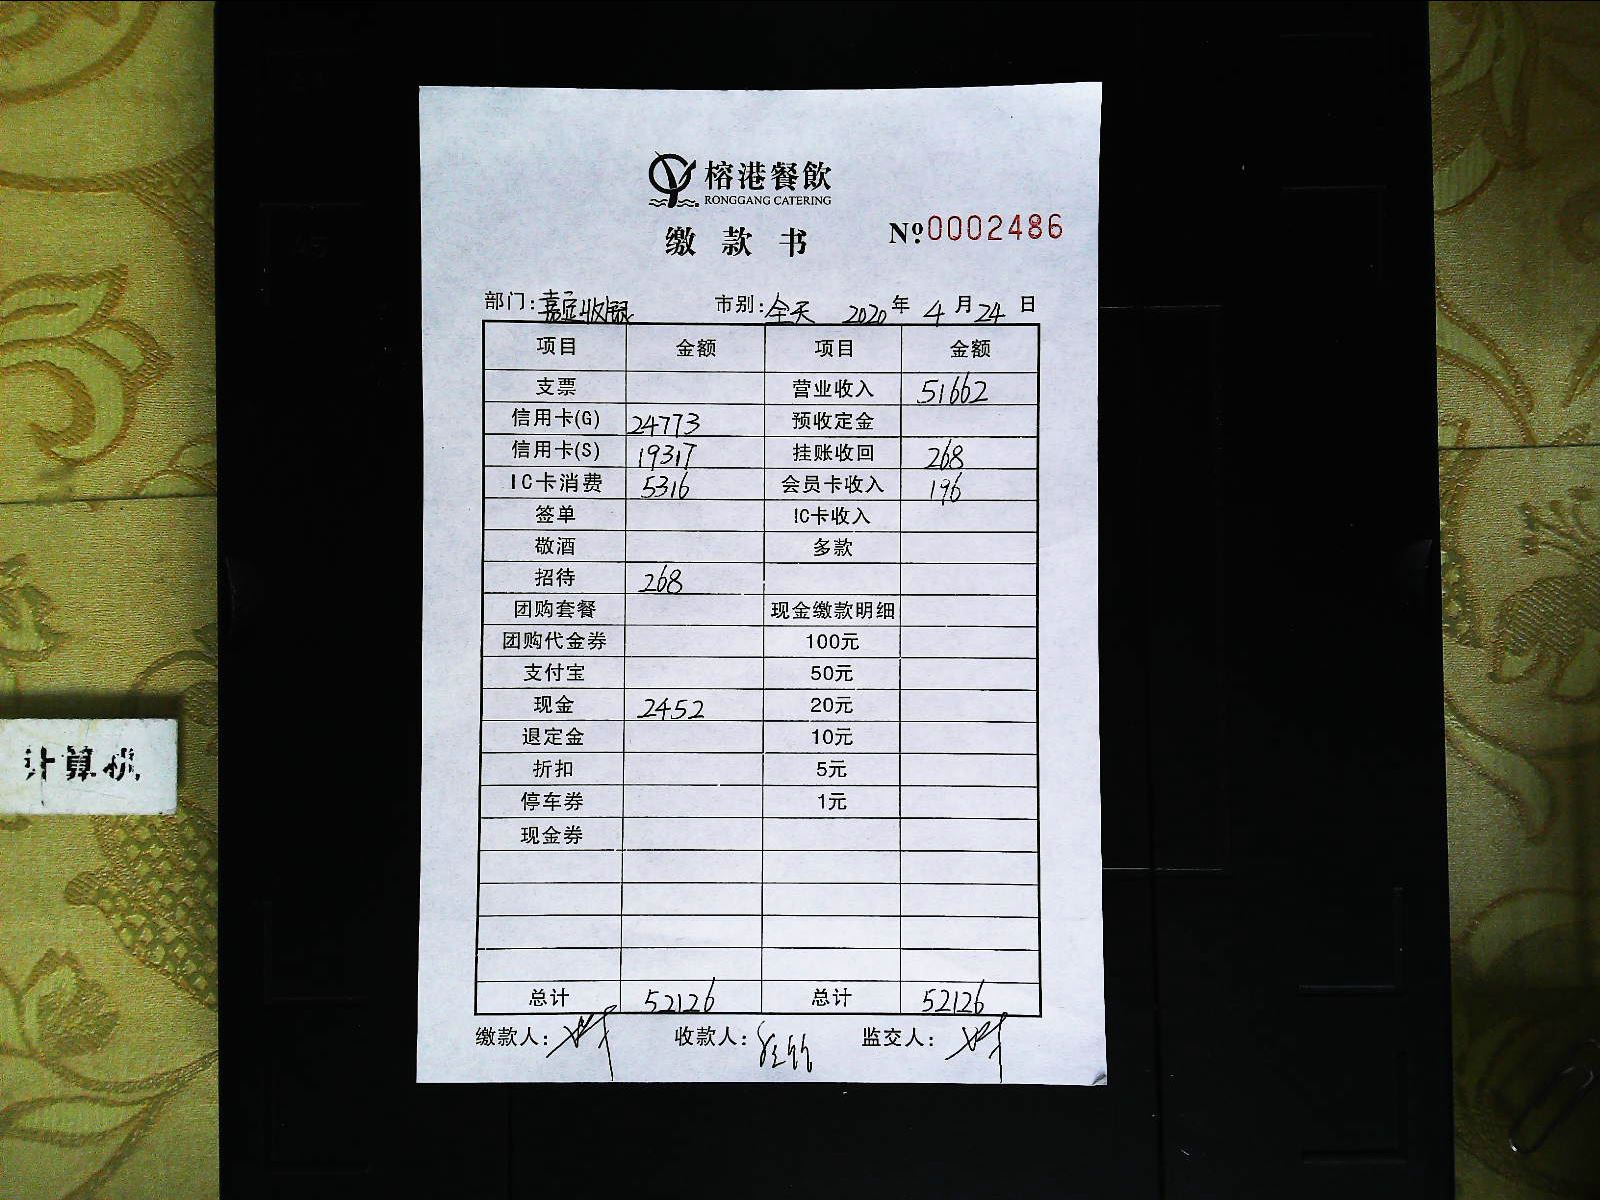 榕港餐飲
RONGGANG CATERING
缴款书
№0002486
部门:嘉定收银 市别:全天 2020年4月24日
项目 金额 项目 金额
支票 营业收入 51662
信用卡(G) 24773 预收定金
信用卡(S) 19317 挂账收回 268
IC卡消费 5316 会员卡收入 196
签单 IC卡收入
敬酒 多款
招待 268
团购套餐 现金缴款明细
团购代金券 100元
支付宝 50元
现金 2452 20元
退定金 10元
折扣 5元
停车券 1元
现金券
总计 52126 总计 52126
缴款人: 收款人: 监交人:
计算机